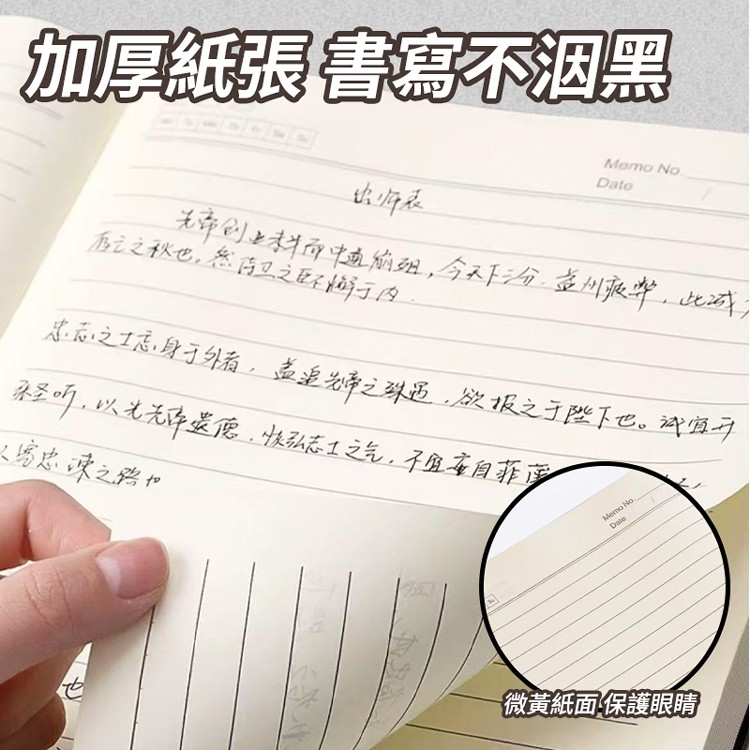 加厚紙張 書寫不洇黑
Memo No.
Date
出师表
先帝创业未半而中道崩殂，今天下三分，益州疲弊，此诚
存亡之秋也。然侍卫之臣不懈于内
忠志之士忘身于外者，盖追先帝之殊遇，欲报之于陛下也。诚宜开
张圣听，以光先帝遗德，恢弘志士之气，不宜妄自菲薄
以塞忠谏之路也
也
Memo No.
Date
Su
微黃紙面 保護眼睛